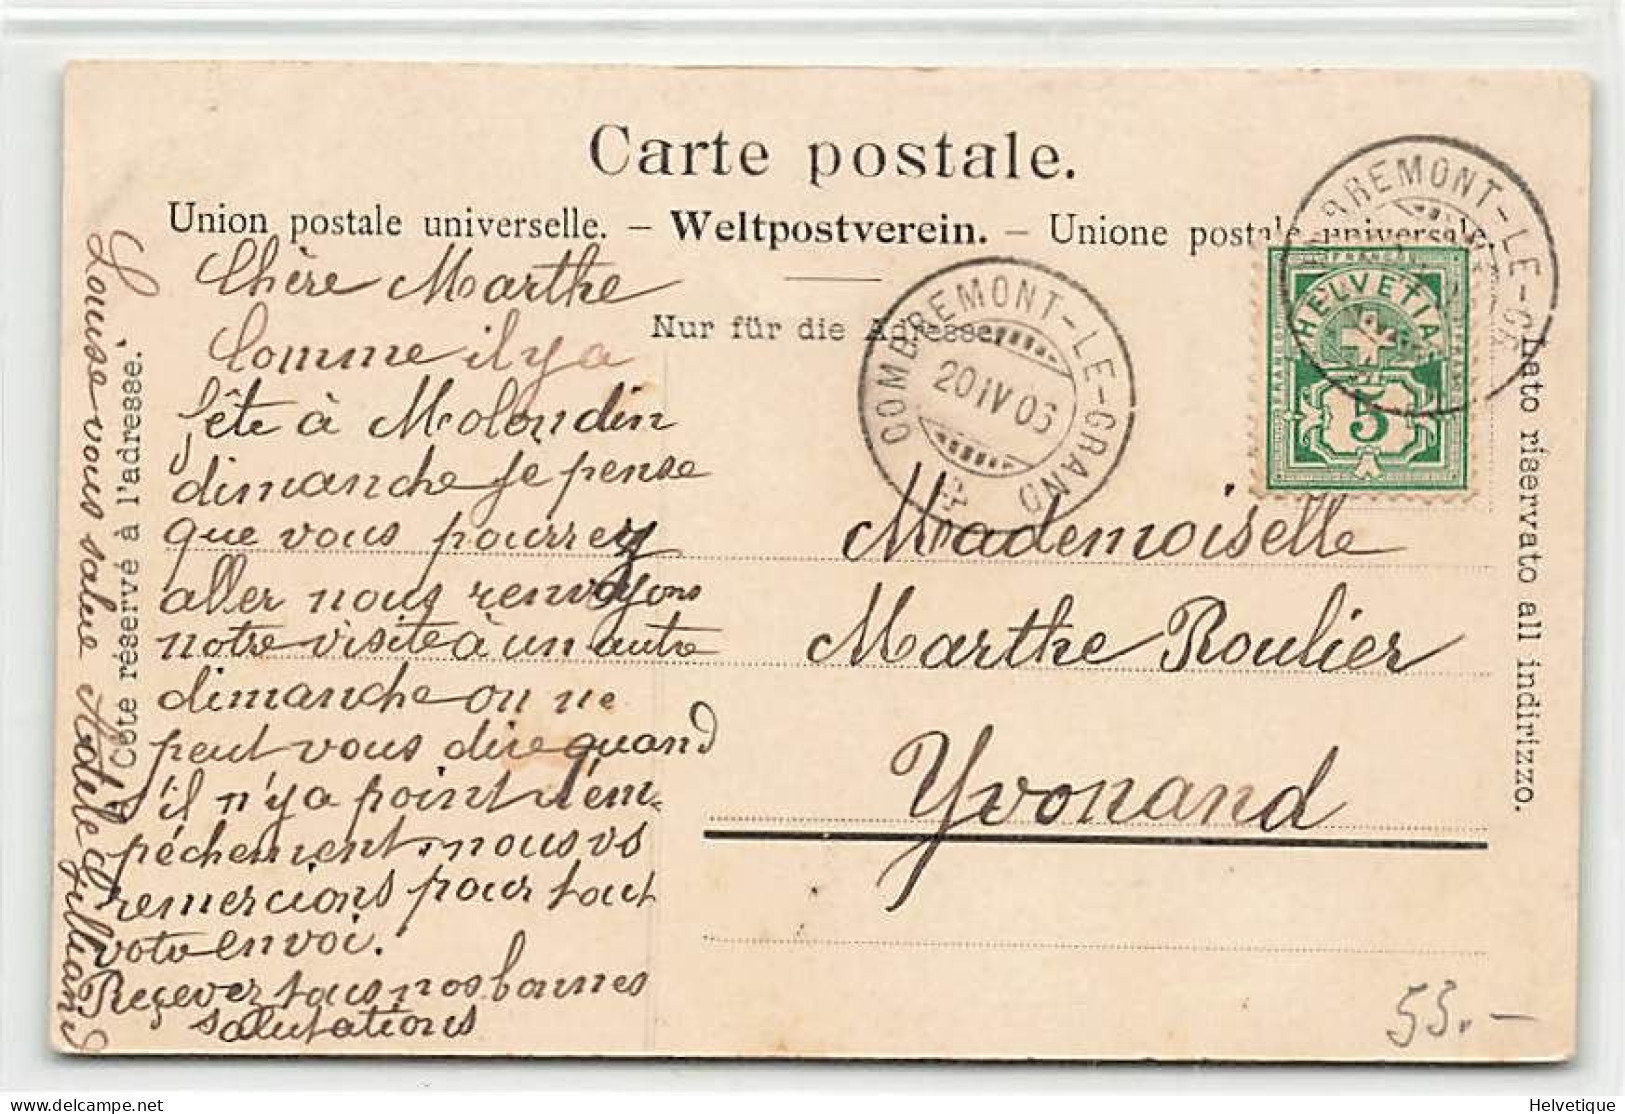 Carte postale.
Union postale universelle. — Weltpostverein. — Unione postale universale.
Nur für die Adresse
Côté réservé à l'adresse.
Lato riservato all indirizzo.
COMBREMONT-LE-GRAND
20 IV 06
COMBREMONT-LE-GR
FRANCO
HELVETIA
5
Chère Marthe
Comme il y a
fête à Molondin
dimanche je pense
que vous pourrez
aller nous renvoyons
notre visite à un autre
dimanche on ne
peut vous dire quand
s'il n'y a point d'em-
pêchement. nous vs
remercions pour tout
votr envoi.
Reçevez tous nos bonnes
salutations
Louise vous salue Adèle Gilliand
Mademoiselle
Marthe Roulier
Yvonand
53.-
delcampe.net
Helvetique